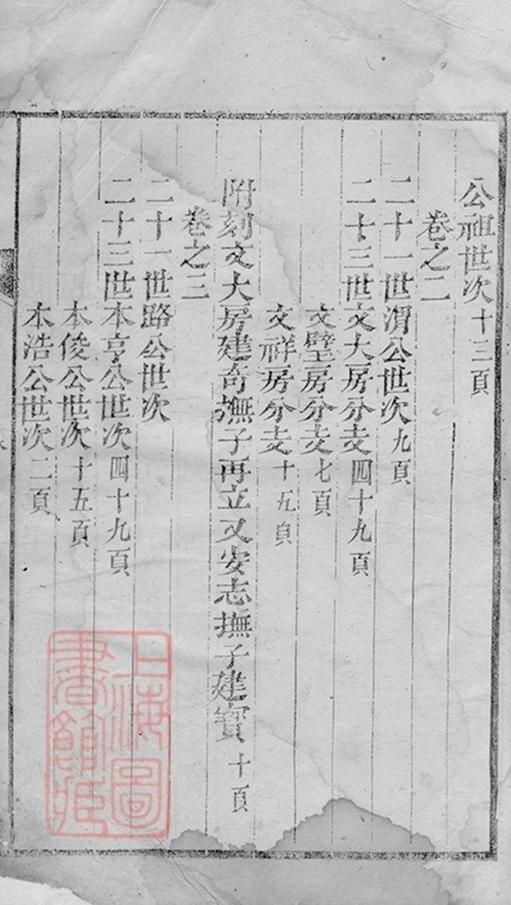 公祖世次十三頁
卷之二
二十一世渭公世次九頁
二十三世文大房分支四十九頁
文璧房分支七頁
文祥房分支十五頁
附刻文大房建奇撫子再立又安志撫子建寳十頁
卷之三
二十一世路公世次
二十三世本亨公世次四十九頁
本俊公世次十五頁
本浩公世次二頁
上海圖
書館藏